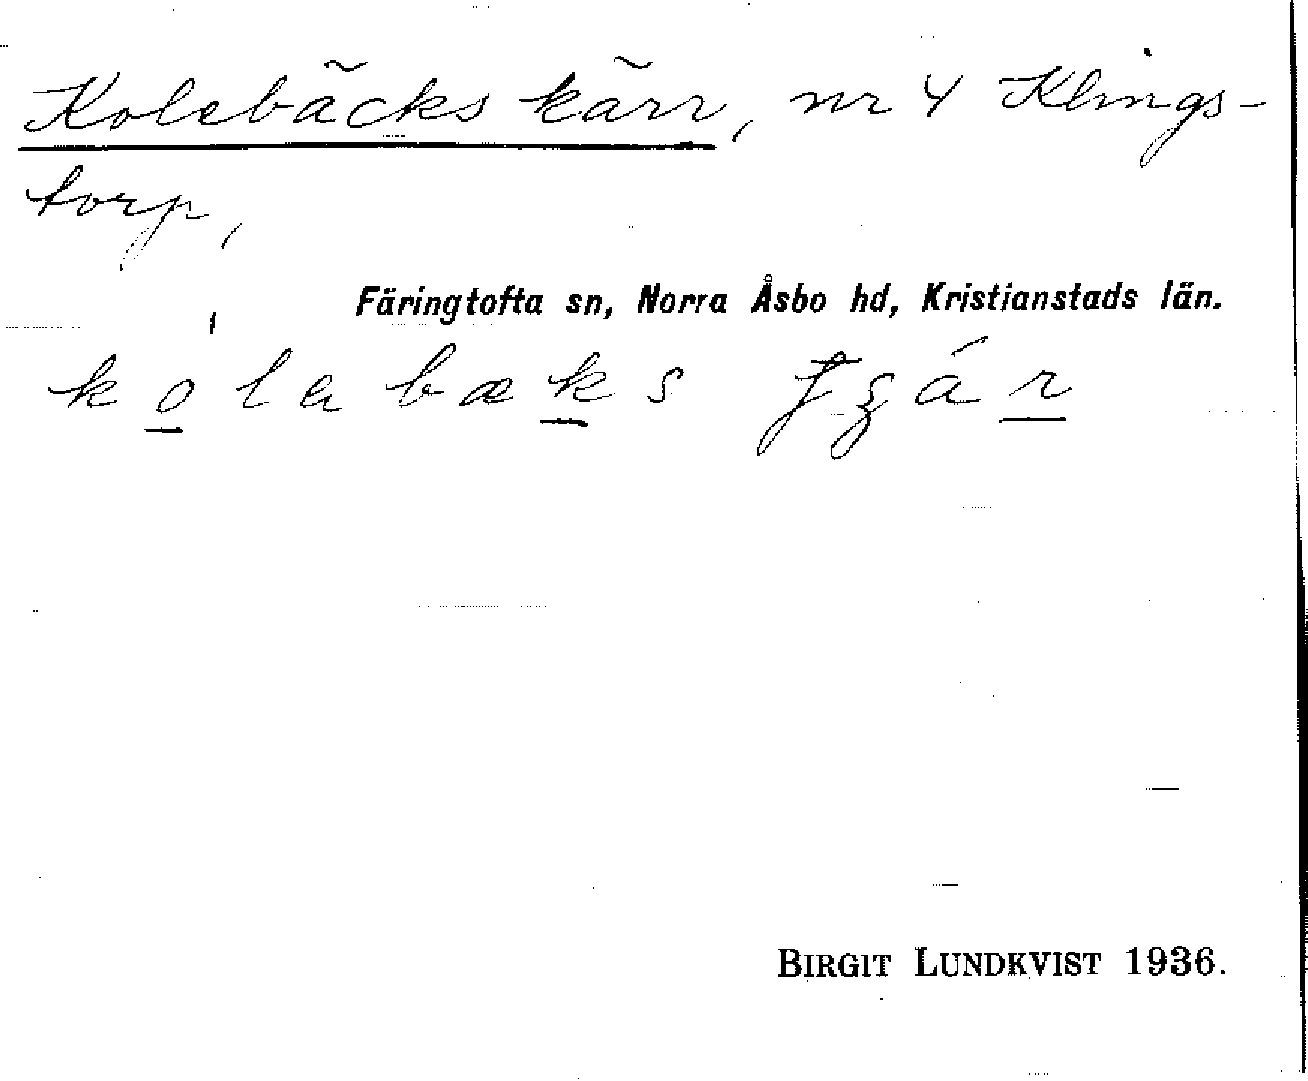 Kolebäckskärr, nr 4 Klings-
torp,
Färingtofta sn, Norra Åsbo hd, Kristianstads län.
Birgit Lundkvist 1936.